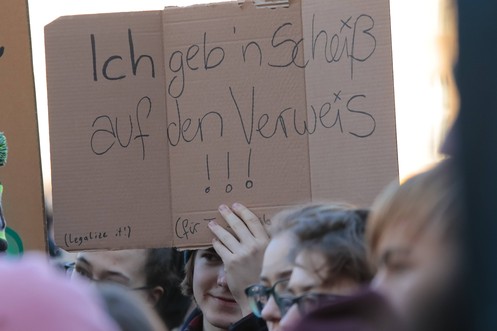 Ich geb'n Scheiß
auf den Verweis
!!!
(legalize it!)
(für